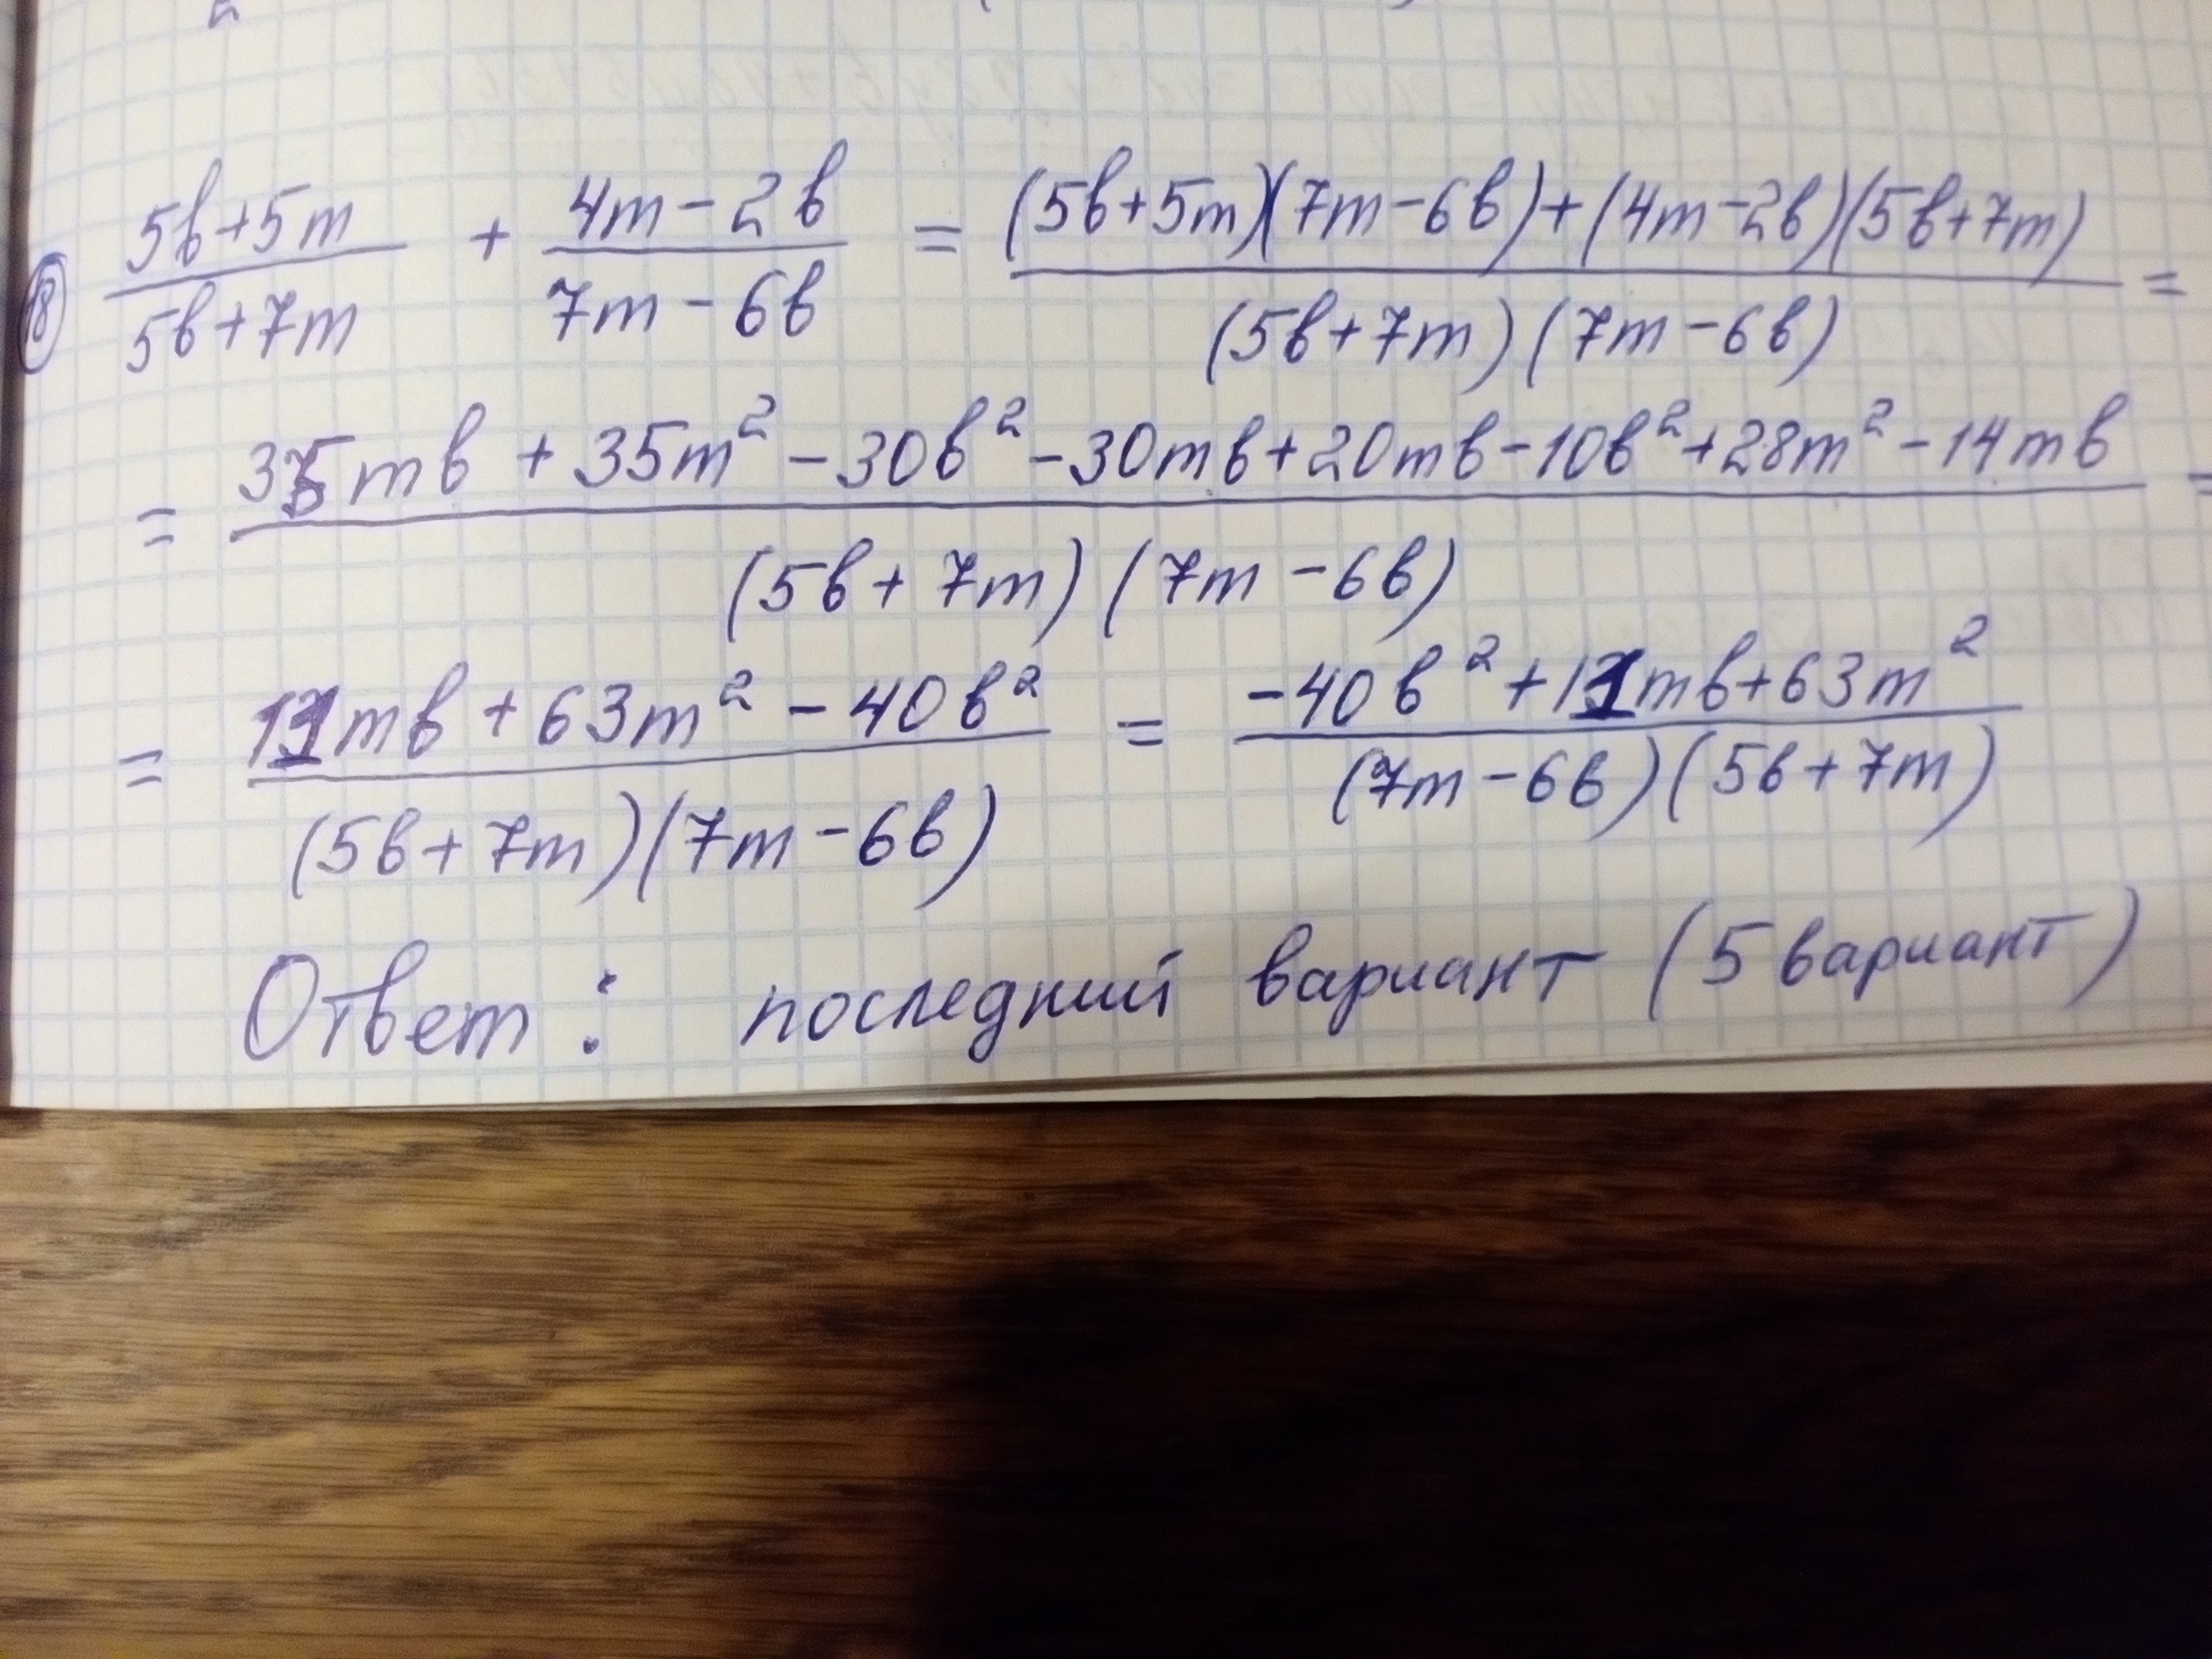 ⑧ (5в+5m)/(5в+7m) + (4m-2в)/(7m-6в) = ((5в+5m)(7m-6в)+(4m-2в)(5в+7m))/((5в+7m)(7m-6в)) =
= (35mв + 35m² - 30в² - 30mв + 20mв - 10в² + 28m² - 14mв)/((5в+7m)(7m-6в)) =
= (11mв + 63m² - 40в²)/((5в+7m)(7m-6в)) = (-40в² + 11mв + 63m²)/((7m-6в)(5в+7m))
Ответ: последний вариант (5 вариант)